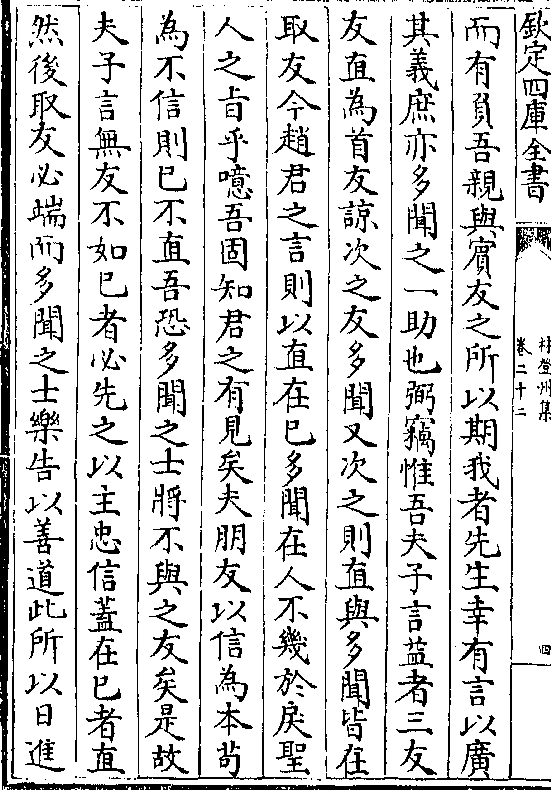 欽定四庫全書
林登州集
卷二十二
四
而有負吾親與賓友之所以期我者先生幸有言以廣
其義庶亦多聞之一助也弼竊惟吾夫子言益者三友
友直為首友諒次之友多聞又次之則直與多聞皆在
取友今趙君之言則以直在已多聞在人不幾於戾聖
人之旨乎噫吾固知君之有見矣夫朋友以信為本茍
為不信則已不直吾恐多聞之士將不與之友矣是故
夫子言無友不如已者必先之以主忠信蓋在已者直
然後取友必端而多聞之士樂告以善道此所以日進